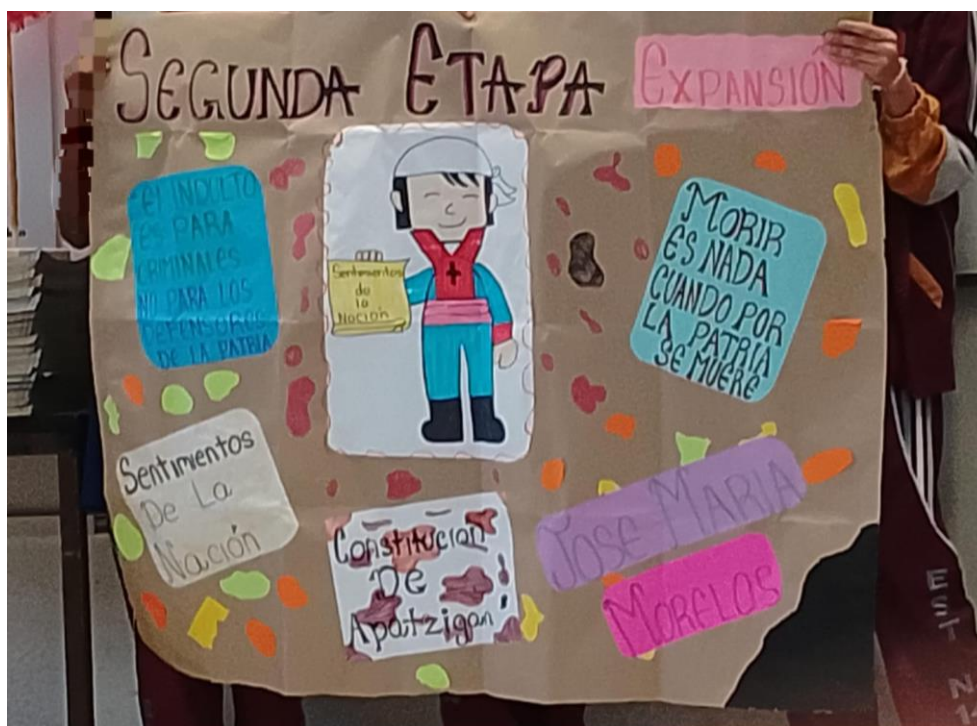 SEGUNDA ETAPA EXPANSIÓN
El INDULTO
ES PARA
CRIMINALES
NO PARA LOS
DEFENSORES
DE LA PATRIA
Sentimientos
de
la
Nación
MORIR
ES NADA
CUANDO POR
LA PATRIA
SE MUERE
Sentimientos
De La
Nación
Constitucion
De
Apatzigan
JOSE MARIA
MORELOS
EST
N